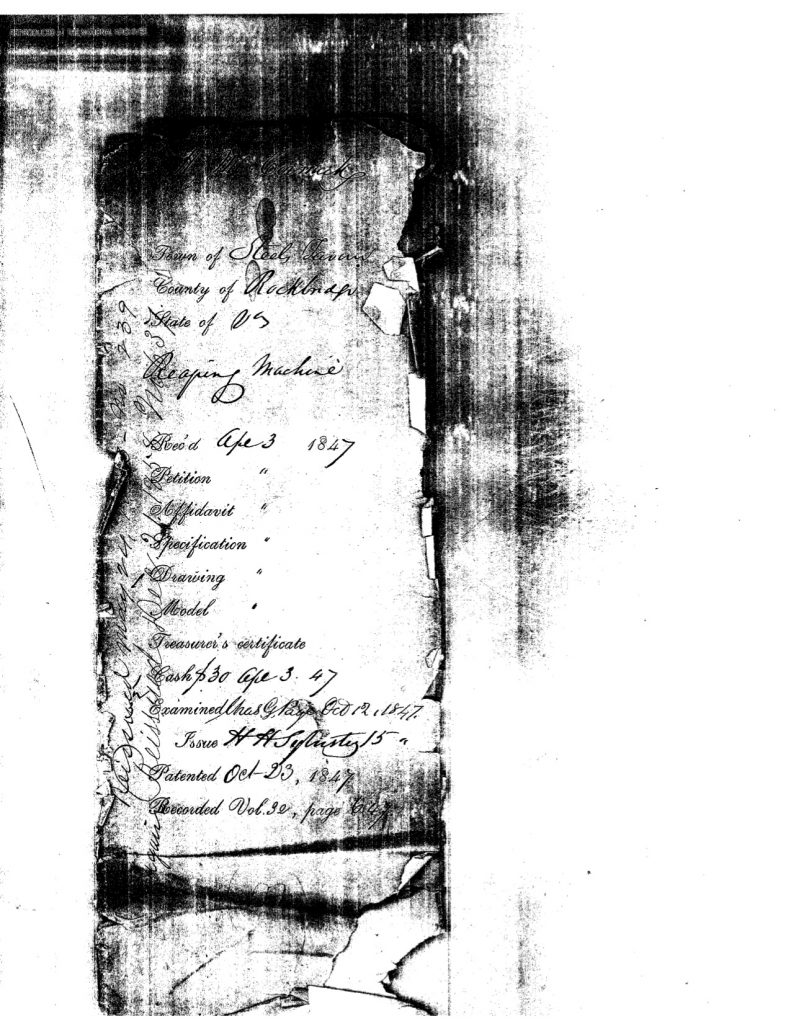 REPRODUCED AT THE NATIONAL ARCHIVES
Mc Cormick
Town of Steels Tavern
County of Rockbridge
State of Va
Reaping Machine
Rec'd Apr 3 1847
Petition "
Affidavit "
Specification "
1 Drawing "
Model "
Treasurer's certificate
Cash $30 Apr 3. 47
Examined Chas G. Page Oct 12, 1847.
Issue H H Sylvester 15 "
Patented Oct 23, 1847
Recorded Vol.
page
Reissued May 24,
239
Reissued Dec